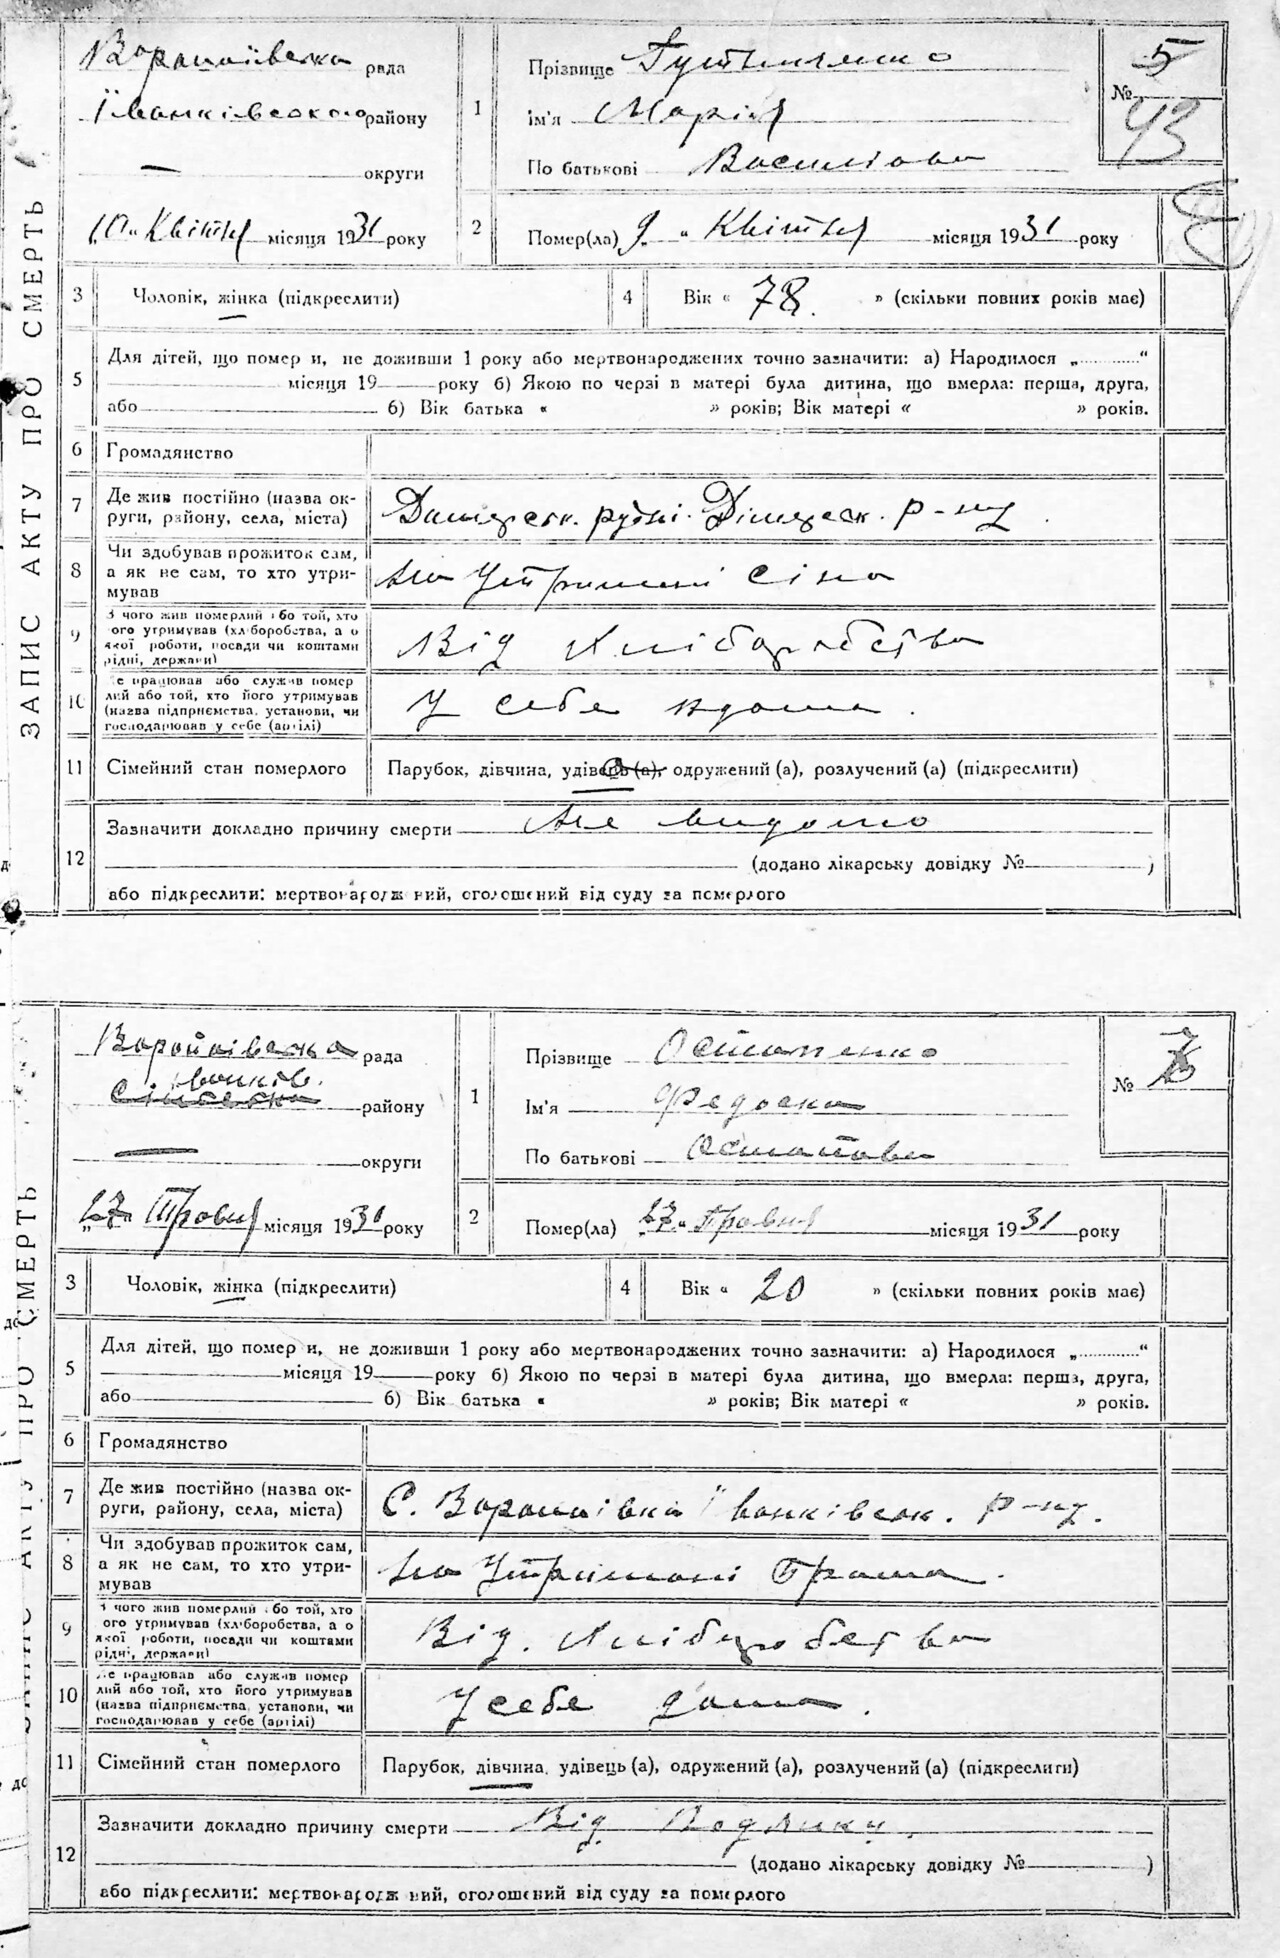 ЗАПИС АКТУ ПРО СМЕРТЬ
Воропаївська рада
Іванківського району
— округи
„10“ Квітня місяця 1931 року
1
Прізвище
ім'я Марія
По батькові Василівна
№ 5
43
2
Помер(ла) 9 „ Квітня місяця 1931 року
3 Чоловік, жінка (підкреслити)
4 Вік « 78 » (скільки повних років має)
5 Для дітей, що помер и, не доживши 1 року або мертвонароджених точно зазначити: а) Народилося „...........“
місяця 19 року б) Якою по черзі в матері була дитина, що вмерла: перша, друга,
або б) Вік батька « » років; Вік матері « » років.
6 Громадянство
7 Де жив постійно (назва ок-
руги, району, села, міста)
Димерськ. р-ну
8 Чи здобував прожиток сам,
а як не сам, то хто утри-
мував
на Утриманні сіна
9 З чого жив померлий або той, хто
ого утримував (хліборобства, а о
якої роботи, посади чи коштами
рідні, держави)
Від Хліборобства
10 Де працював або служив помер
лий або той, хто його утримував
(назва підприємства, установи, чи
господарював у себе (артілі)
У себе вдома.
11 Сімейний стан померлого Парубок, дівчина, удівець (а), одружений (а), розлучений (а) (підкреслити)
12 Зазначити докладно причину смерти Не видомо
(додано лікарську довідку № )
або підкреслити: мертвонародж ний, оголошений від суду за померлого
ЗАПИС АКТУ ПРО СМЕРТЬ
Воропаївська рада
Іванків. району
— округи
„27“ Травня місяця 1931 року
1
Прізвище Остапенко
Ім'я Федоска
По батькові Остапівна
№
2
Помер(ла) 27 „ Травня місяця 1931 року
3 Чоловік, жінка (підкреслити)
4 Вік « 20 » (скільки повних років має)
5 Для дітей, що помер и, не доживши 1 року або мертвонароджених точно зазначити: а) Народилося „...........“
місяця 19 року б) Якою по черзі в матері була дитина, що вмерла: перша, друга,
або б) Вік батька « » років; Вік матері « » років.
6 Громадянство
7 Де жив постійно (назва ок-
руги, району, села, міста)
С. Воропаївка Іванківськ. р-ну.
8 Чи здобував прожиток сам,
а як не сам, то хто утри-
мував
на Утримані Брата.
9 З чого жив померлий або той, хто
ого утримував (хліборобства, а о
якої роботи, посади чи коштами
рідні, держави)
Від. Хліборобства
10 Де працював або служив помер
лий або той, хто його утримував
(назва підприємства, установи, чи
господарював у себе (артілі)
У себе дома.
11 Сімейний стан померлого Парубок, дівчина, удівець (а), одружений (а), розлучений (а) (підкреслити)
12 Зазначити докладно причину смерти Від
(додано лікарську довідку № )
або підкреслити: мертвонародж ний, оголошений від суду за померлого